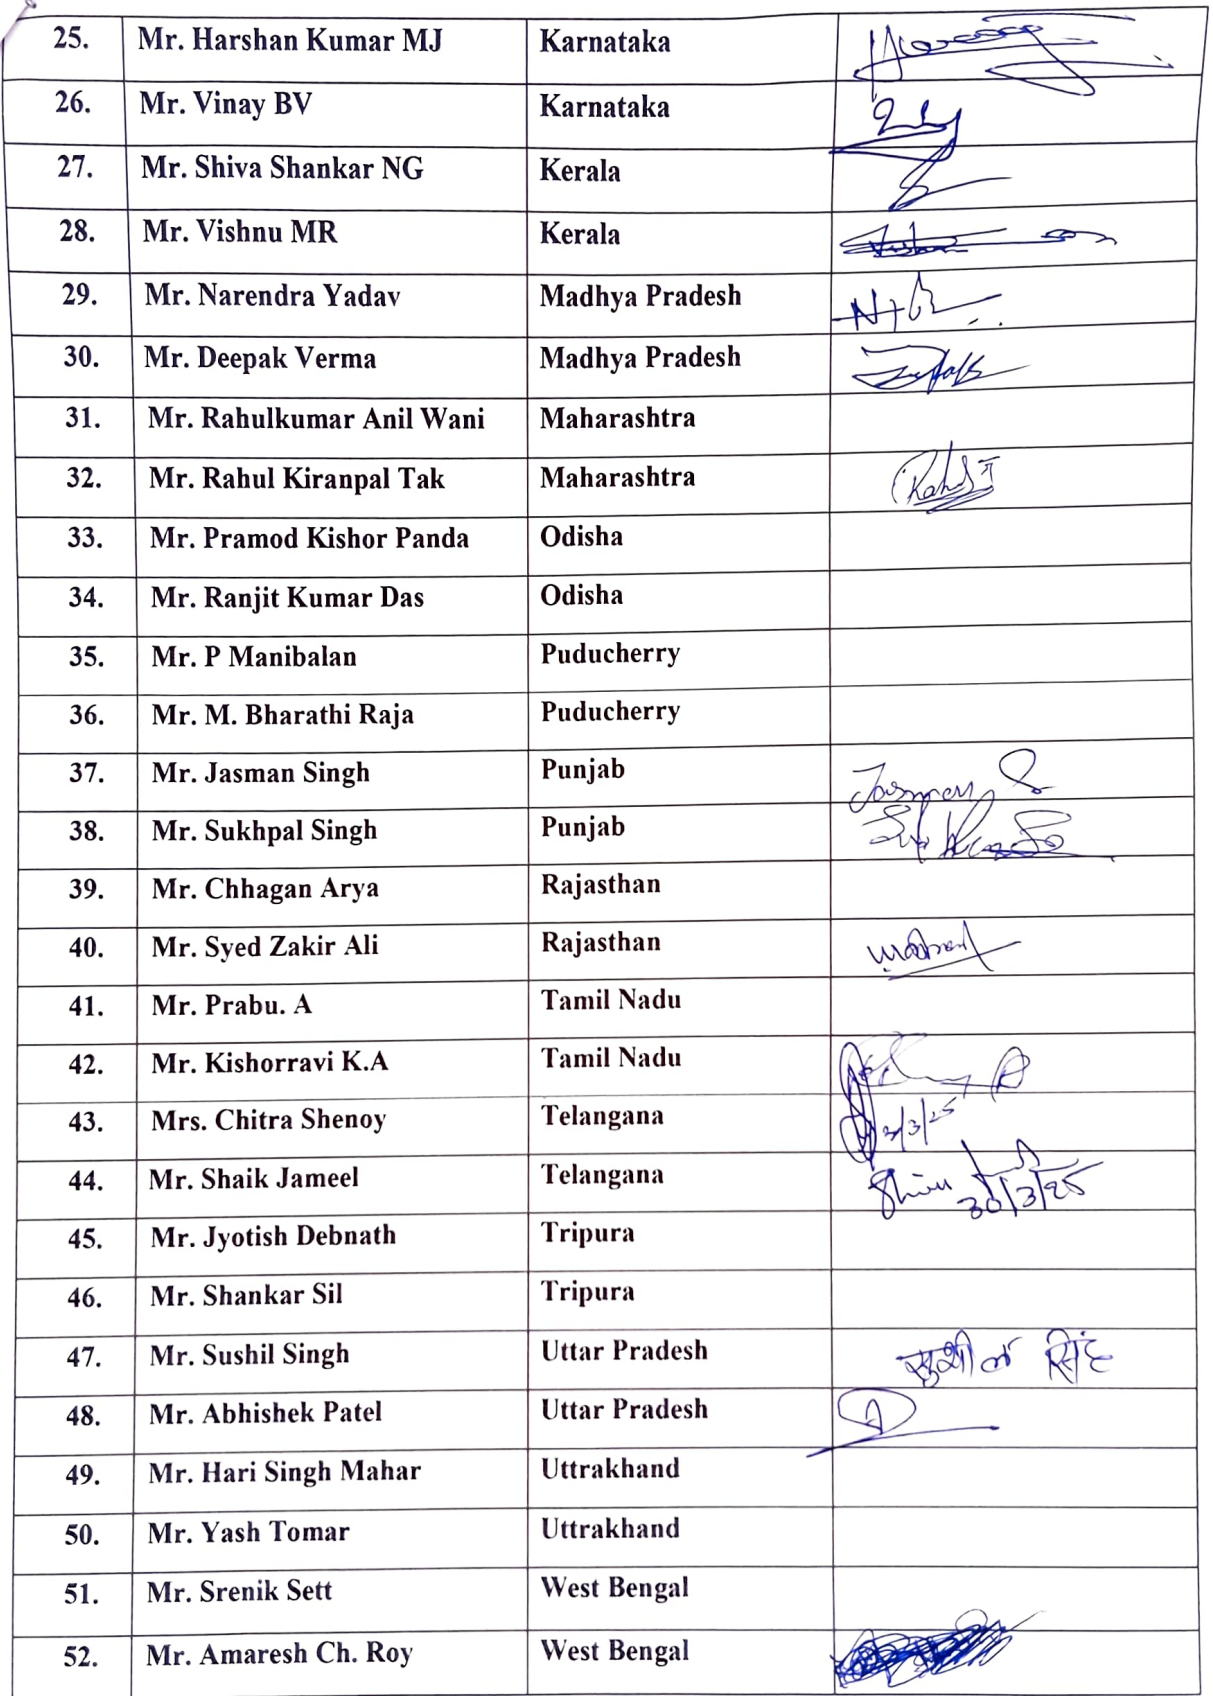 25. Mr. Harshan Kumar MJ Karnataka
26. Mr. Vinay BV Karnataka
27. Mr. Shiva Shankar NG Kerala
28. Mr. Vishnu MR Kerala
29. Mr. Narendra Yadav Madhya Pradesh
30. Mr. Deepak Verma Madhya Pradesh
31. Mr. Rahulkumar Anil Wani Maharashtra
32. Mr. Rahul Kiranpal Tak Maharashtra
33. Mr. Pramod Kishor Panda Odisha
34. Mr. Ranjit Kumar Das Odisha
35. Mr. P Manibalan Puducherry
36. Mr. M. Bharathi Raja Puducherry
37. Mr. Jasman Singh Punjab
38. Mr. Sukhpal Singh Punjab
39. Mr. Chhagan Arya Rajasthan
40. Mr. Syed Zakir Ali Rajasthan
41. Mr. Prabu. A Tamil Nadu
42. Mr. Kishorravi K.A Tamil Nadu
43. Mrs. Chitra Shenoy Telangana
44. Mr. Shaik Jameel Telangana 30/3/25
45. Mr. Jyotish Debnath Tripura
46. Mr. Shankar Sil Tripura
47. Mr. Sushil Singh Uttar Pradesh सुशील सिंह
48. Mr. Abhishek Patel Uttar Pradesh
49. Mr. Hari Singh Mahar Uttrakhand
50. Mr. Yash Tomar Uttrakhand
51. Mr. Srenik Sett West Bengal
52. Mr. Amaresh Ch. Roy West Bengal